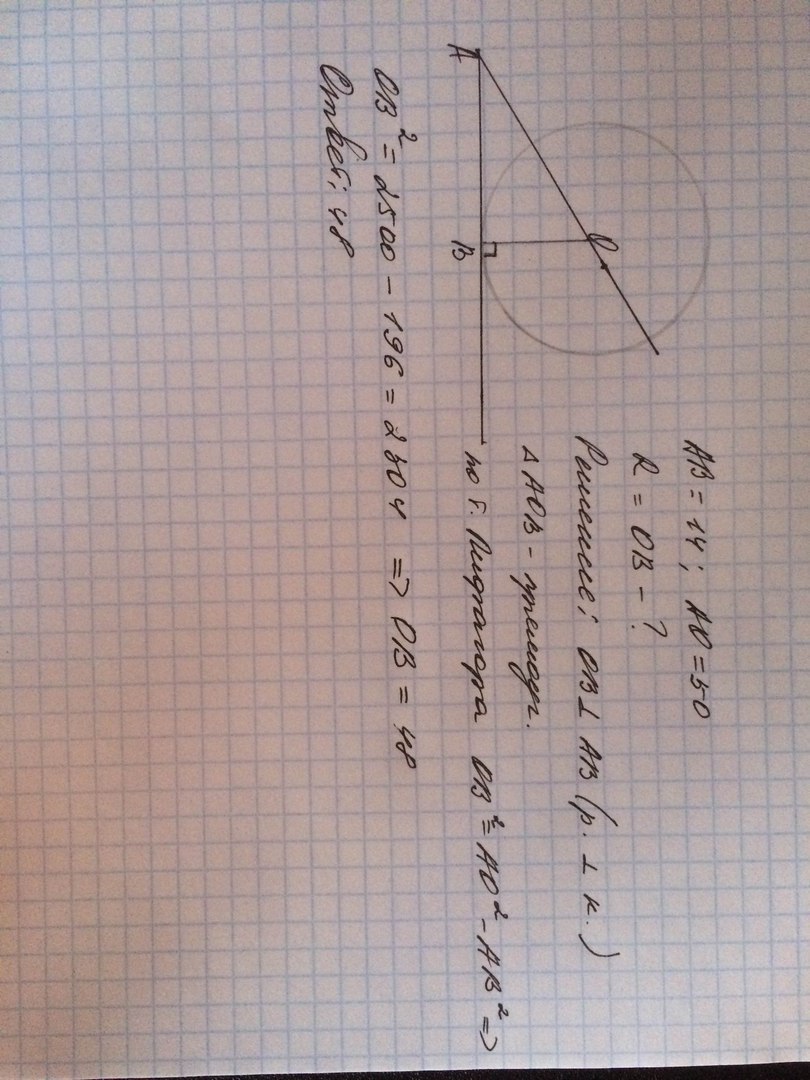 AB = 14; AO = 50
R = OB - ?
Решение: OB ⊥ AB (р. ⊥ к.)
Δ AOB - прямоуг.
по т. Пифагора OB² = AO² - AB² =>
OB² = 2500 - 196 = 2304 => OB = 48
Ответ: 48
A
B
O